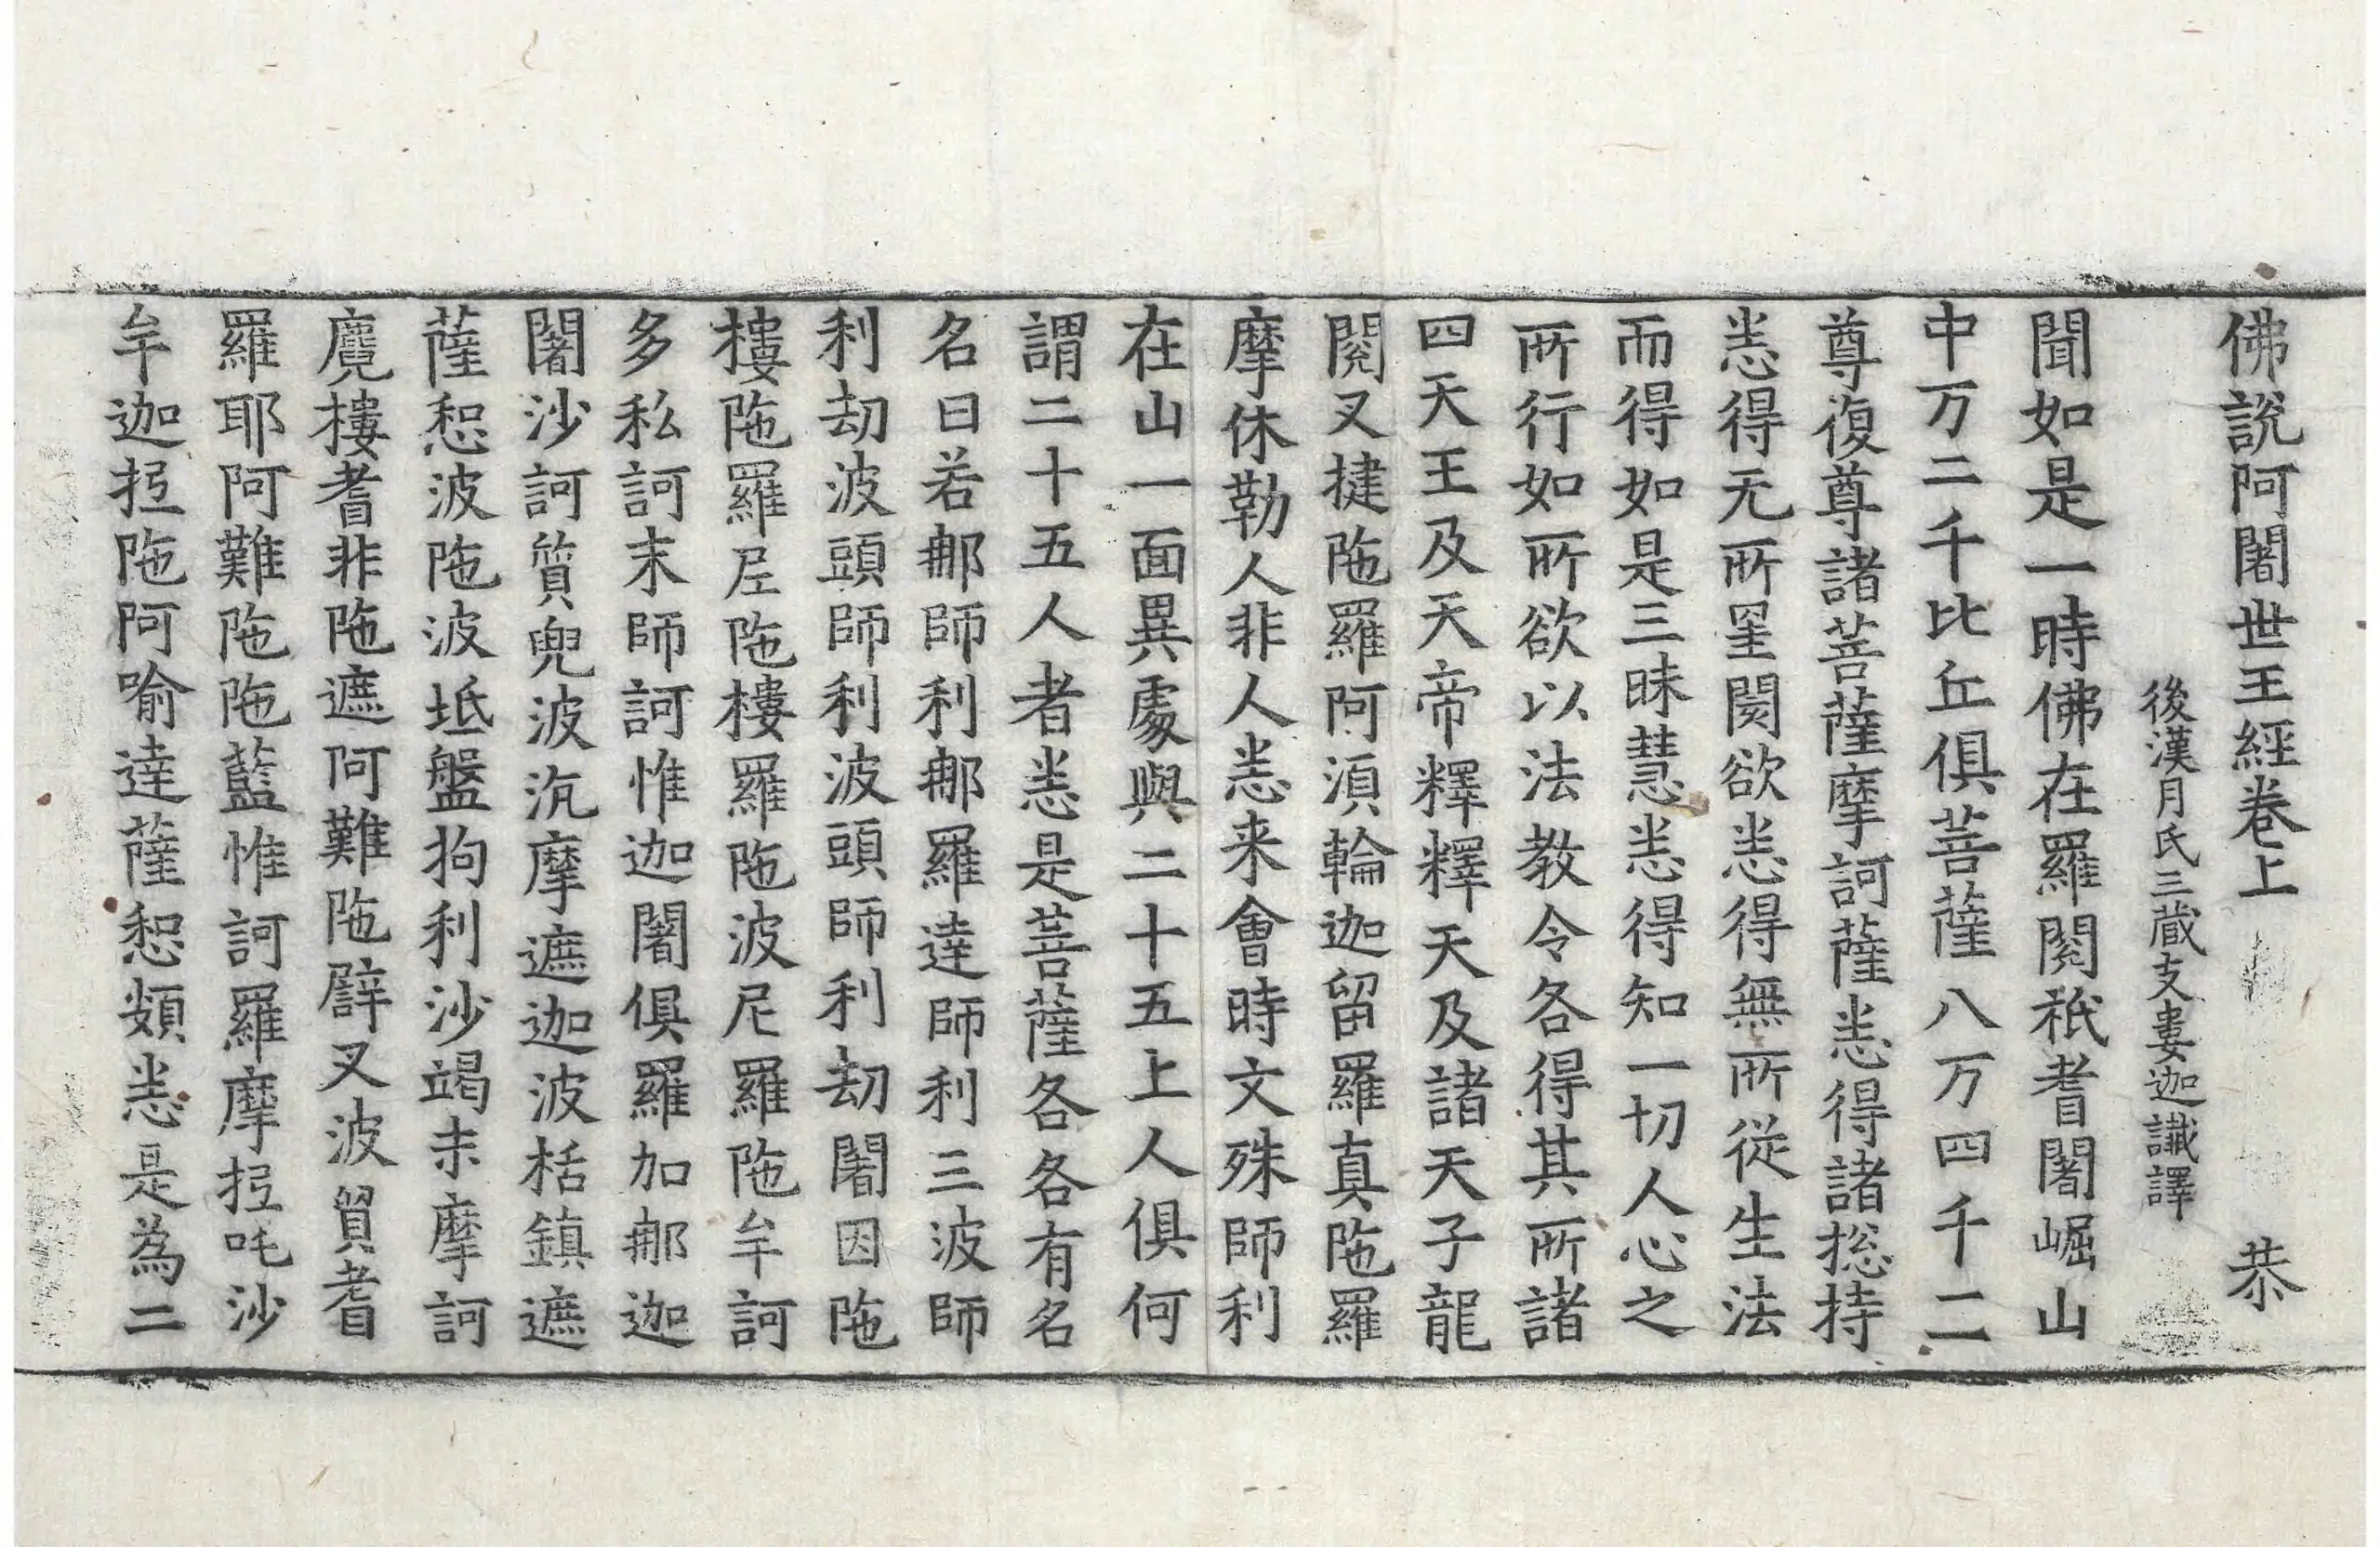 佛說阿闍世王經卷上 恭
後漢月氏三藏支婁迦讖譯
聞如是一時佛在羅閱祇耆闍崛山
中万二千比丘俱菩薩八万四千二
尊復尊諸菩薩摩訶薩悉得諸揔持
悉得无所罣閡欲悉得無所從生法
而得如是三昧慧悉得知一切人心之
所行如所欲以法教令各得其所諸
四天王及天帝釋釋天及諸天子龍
閱叉揵陁羅阿湏輪迦留羅真陁羅
摩休勒人非人悉来會時文殊師利
在山一面異處與二十五上人俱何
謂二十五人者悉是菩薩各各有名
名曰若郍師利郍羅達師利三波師
利劫波頭師利波頭師利劫闍因陁
樓陁羅𡰱陁樓羅陁波尼羅陁牟訶
多私訶末師訶惟迦闍俱羅加郍迦
闍沙訶質兜波沉摩遮迦波栝鎮遮
薩惒波陁波坻盤拘利沙竭末摩訶
麑樓耆非陁遮阿難陁辟叉波貿耆
羅耶阿難陁陁藍惟訶羅摩抳吒沙
牟迦抳陁阿喻達薩惒頞悉是為二